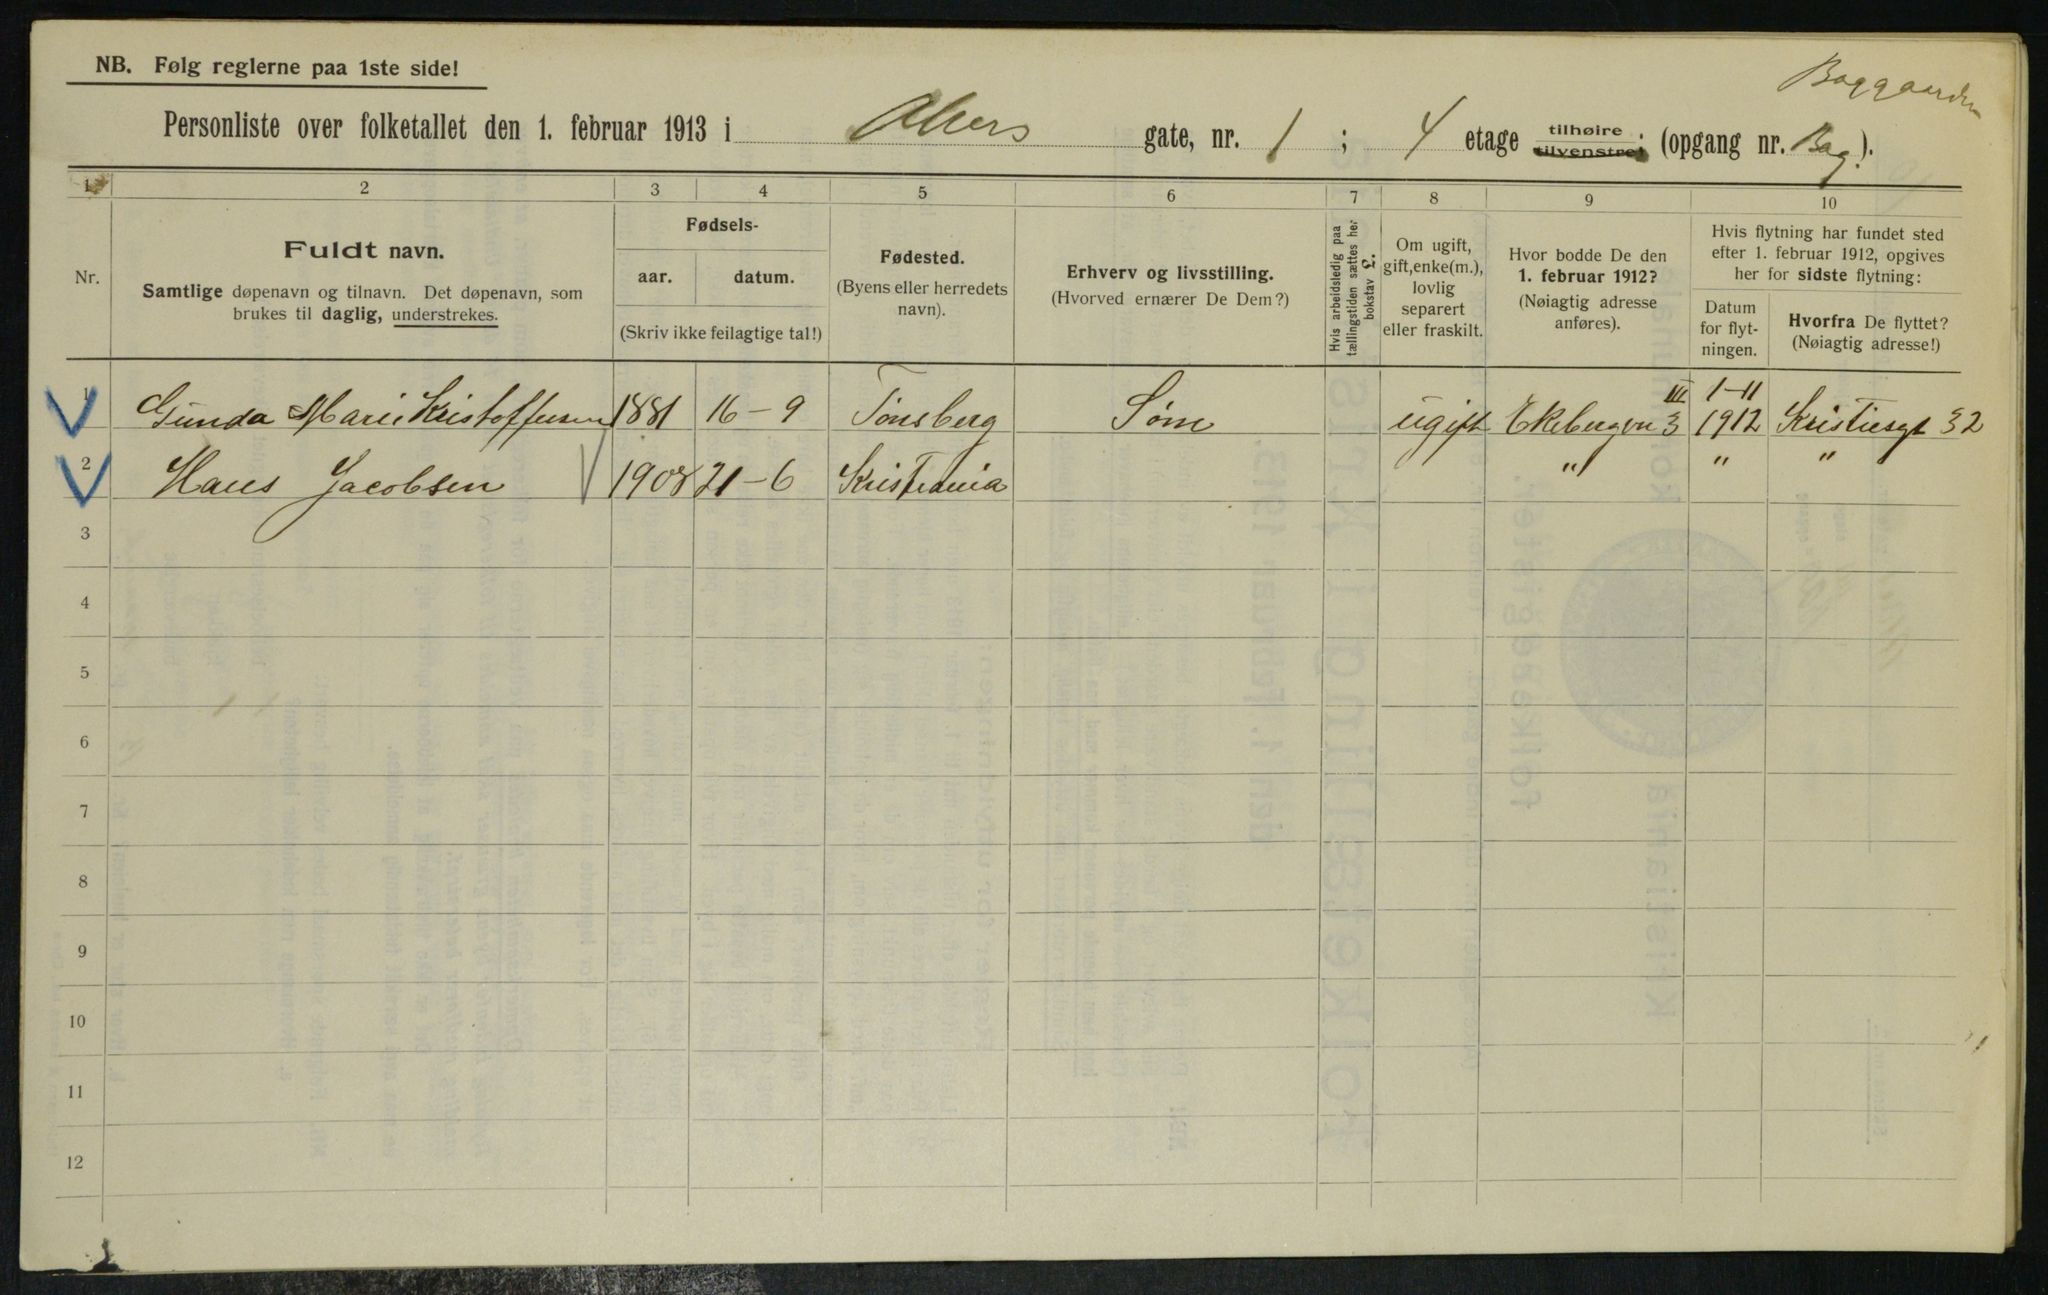 NB. Følg reglerne paa 1ste side!
Baggaarden
Personliste over folketallet den 1. februar 1913 i Akers gate, nr. 1 ; 4 etage tilhøire tilvenstre; (opgang nr. Bag.).
1 2 3 4 5 6 7 8 9 10
Nr.
Fuldt navn.
Samtlige døpenavn og tilnavn. Det døpenavn, som
brukes til daglig, understrekes.
Fødsels-
aar. datum.
(Skriv ikke feilagtige tal!)
Fødested.
(Byens eller herredets
navn).
Erhverv og livsstilling.
(Hvorved ernærer De Dem?)
Hvis arbeidsledig paa
tællingstiden sættes her
bokstav L.
Om ugift,
gift, enke(m.),
lovlig
separert
eller fraskilt.
Hvor bodde De den
1. februar 1912?
(Nøiagtig adresse
anføres).
Hvis flytning har fundet sted
efter 1. februar 1912, opgives
her for sidste flytning:
Datum
for flyt-
ningen.
Hvorfra De flyttet?
(Nøiagtig adresse!)
1 Gunda Marie Kristoffersen 1881 16-9 Tönsberg ugift Ekebergvn 3 III 1-11 1912 Kristiesgt 32
2 Hans Jacobsen 1908 21-6 Kristiania " " "
3
4
5
6
7
8
9
10
11
12